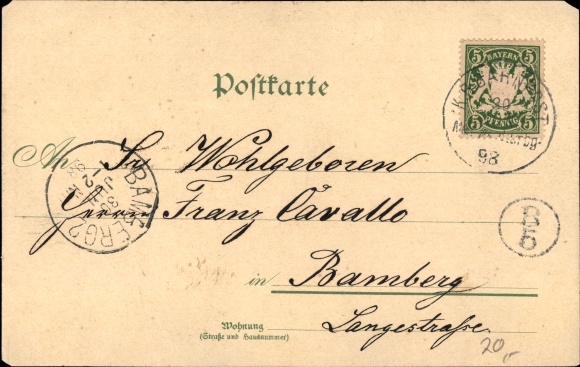 5 BAYERN 5
5 PFENNIG 5
K.B.BAHNPOST
98
Postkarte
An Sr Wohlgeboren
Herrn Franz Cavallo
BAMBERG 2
30
JUL
B
6
in Bamberg
Wohnung
(Straße und Hausnummer)
Langestraße
20,-